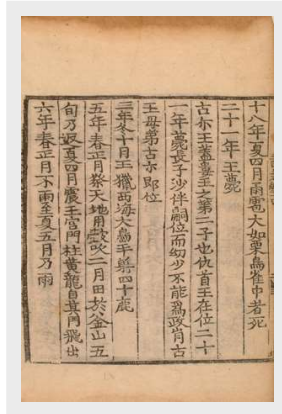 十八年夏四月雨雹大如栗鳥雀中者死
二十一年王薨
古尒王蓋婁王之第二子也仇首王在位二十
一年薨長子沙伴嗣位而幼少不能爲政肖古
王母弟古尒卽位
三年冬十月王獵西海大島手射四十鹿
五年春正月祭天地用鼓吹二月田於釜山五
旬乃返夏四月震王宮門柱黃龍自其門飛出
六年春正月不雨至夏五月乃雨